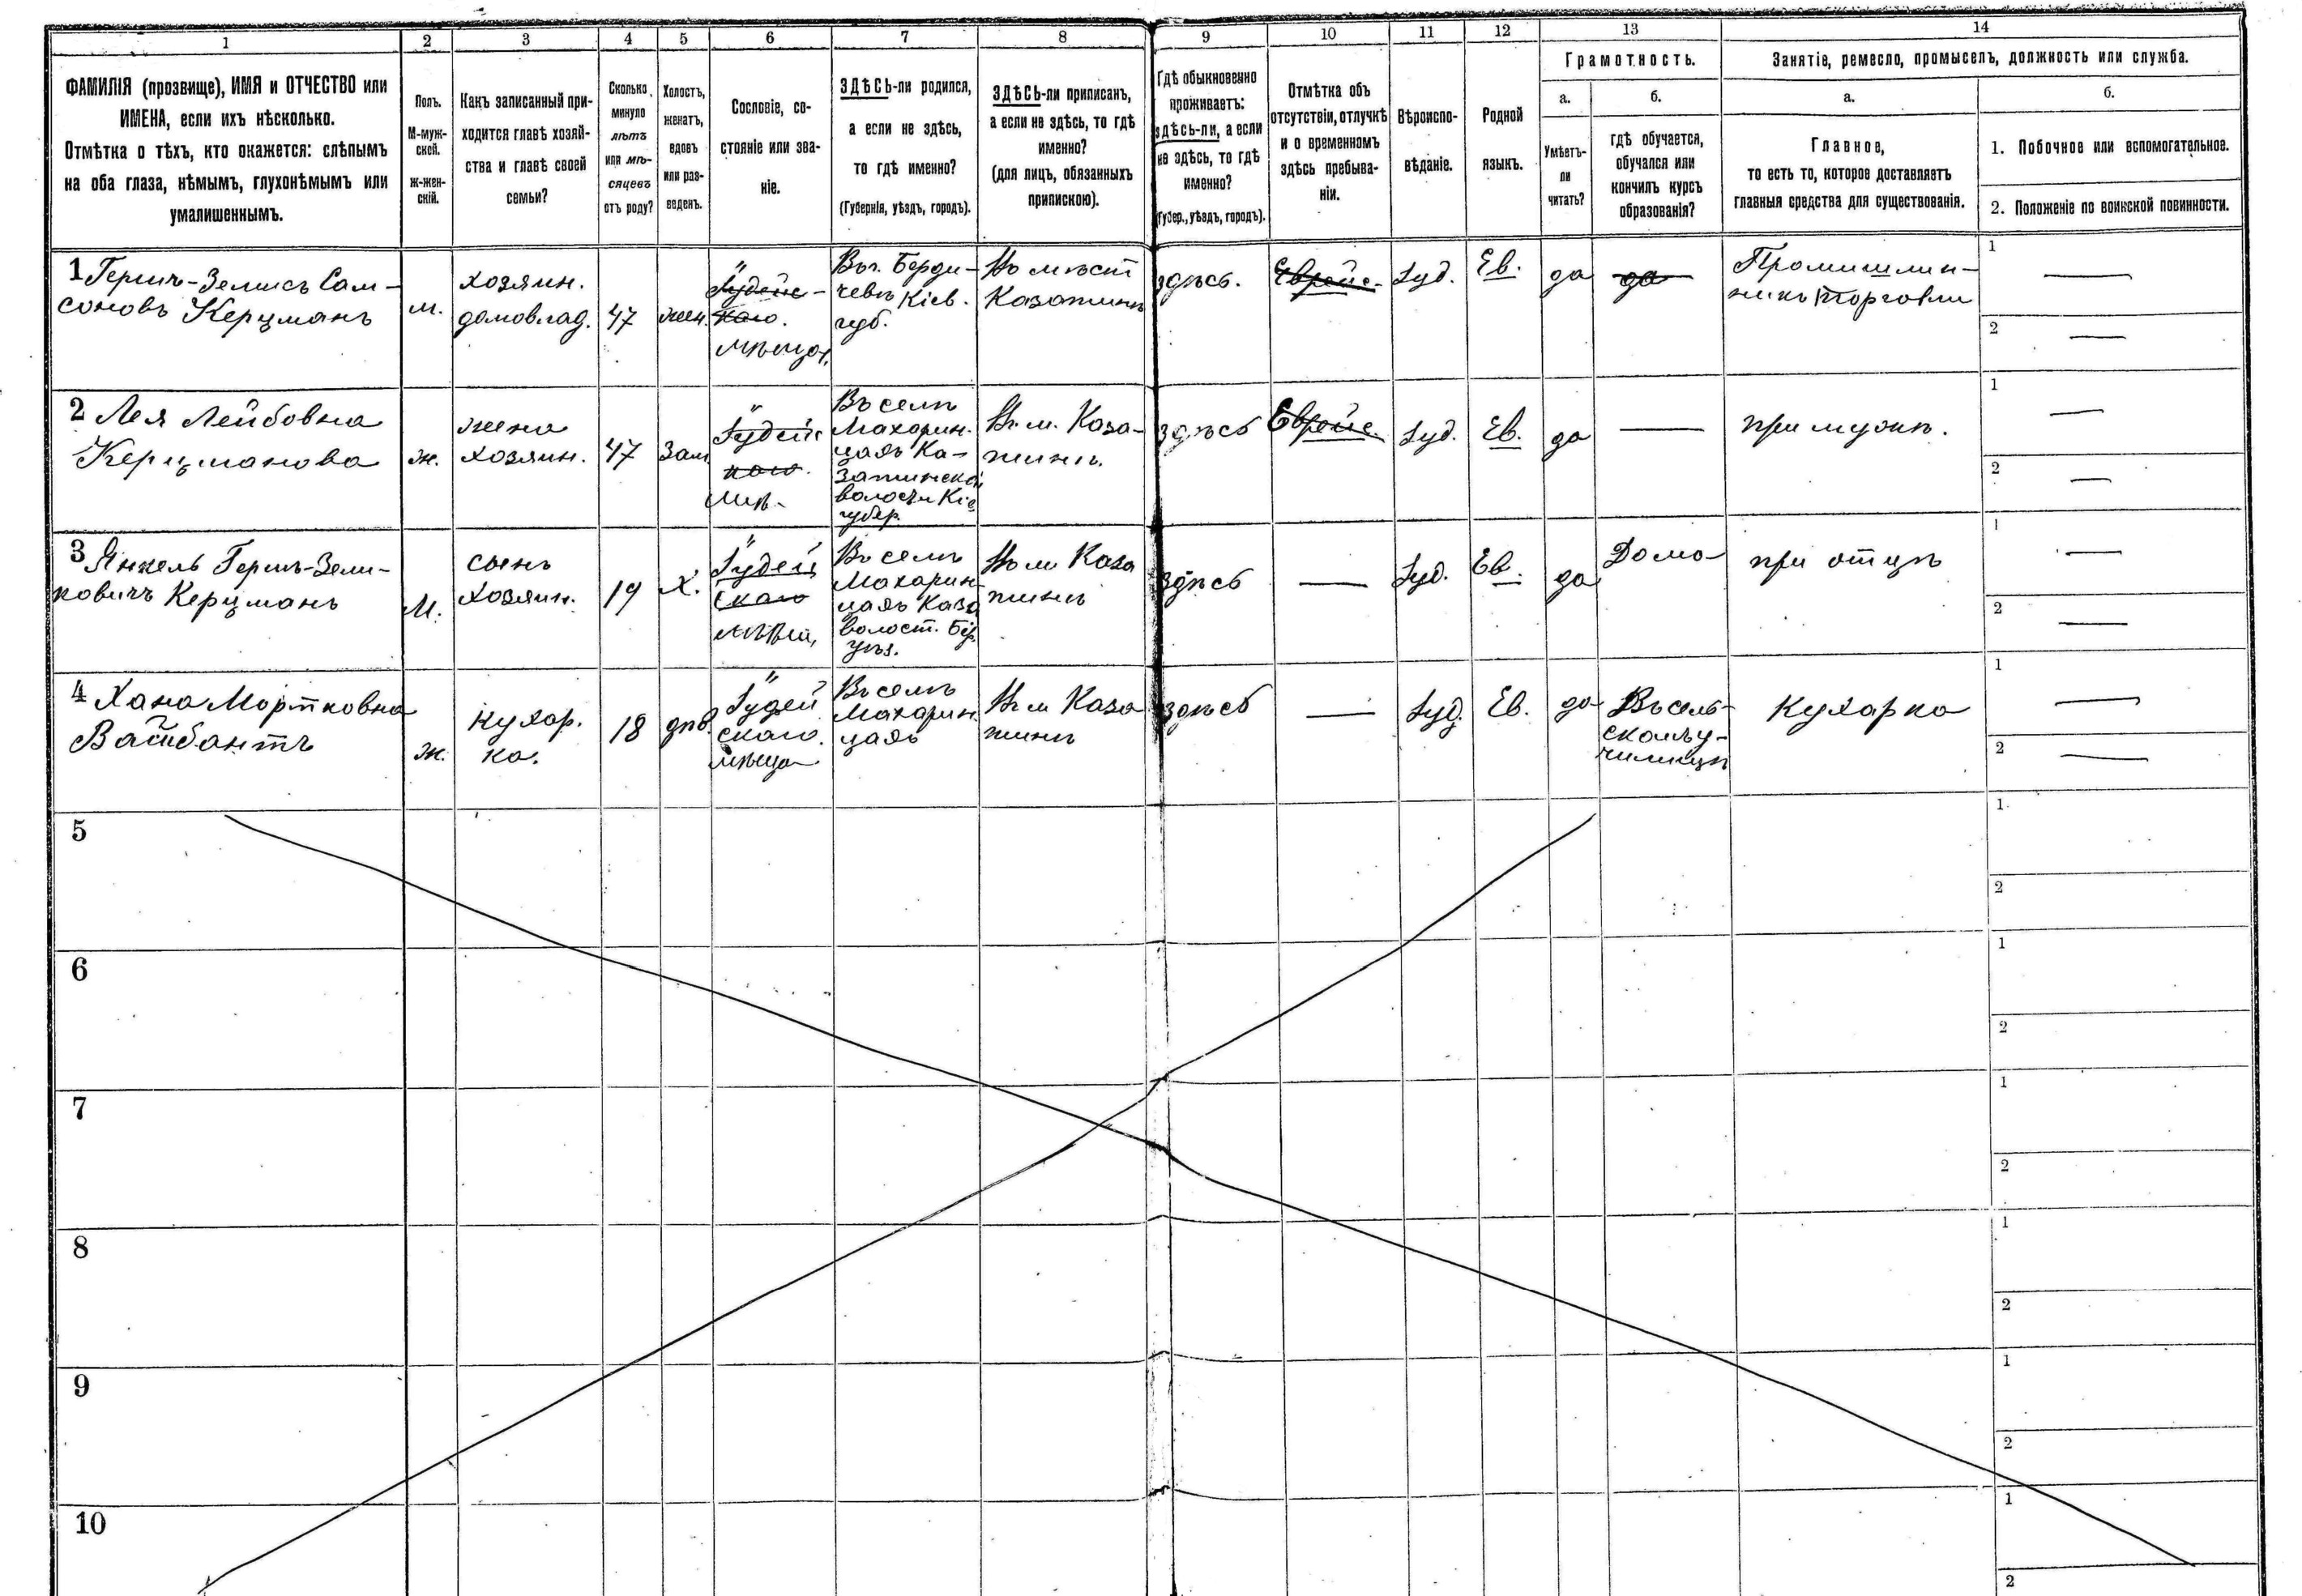 1
2
3
4
5
6
7
8
9
10
11
12
13
14
ФАМИЛІЯ (прозвище), ИМЯ и ОТЧЕСТВО или
ИМЕНА, если ихъ нѣсколько.
Отмѣтка о тѣхъ, кто окажется: слѣпымъ
на оба глаза, нѣмымъ, глухонѣмымъ или
умалишеннымъ.
Полъ.
М-муж-
ской.
ж-жен-
скій.
Какъ записанный при-
ходится главѣ хозяй-
ства и главѣ своей
семьи?
Сколько
минуло
лѣтъ
или мѣ-
сяцевъ
отъ роду?
Холостъ,
женатъ,
вдовъ
или раз-
веденъ.
Сословіе, со-
стояніе или зва-
ніе.
ЗДѢСЬ-ли родился,
а если не здѣсь,
то гдѣ именно?
(Губернія, уѣздъ, городъ).
ЗДѢСЬ-ли приписанъ,
а если не здѣсь, то гдѣ
именно?
(для лицъ, обязанныхъ
припискою).
Гдѣ обыкновенно
проживаетъ:
здѣсь-ли, а если
не здѣсь, то гдѣ
именно?
(Губер., уѣздъ, городъ).
Отмѣтка объ
отсутствіи, отлучкѣ
и о временномъ
здѣсь пребыва-
ніи.
Вѣроиспо-
вѣданіе.
Родной
языкъ.
Грамотность.
а.
Умѣетъ-
ли
читать?
б.
гдѣ обучается,
обучался или
кончилъ курсъ
образованія?
Занятіе, ремесло, промыселъ, должность или служба.
а.
Главное,
то есть то, которое доставляетъ
главныя средства для существованія.
б.
1. Побочное или вспомогательное.
2. Положеніе по воинской повинности.
1 Гершъ-Зелисъ Сам-
соновъ Керцманъ
м.
хозяин.
домовлад.
47
жен.
Іудейс-
каго.
мѣщан.
Въ г. Берди-
чевѣ Кіев.
губ.
Въ мѣст
Казатинѣ
здѣсь.
Еврейс.
Іуд.
Ев.
да
да
Промишлин-
никъ торговли
1
2
2 Лея Лейбовна
Керцманова
ж.
жена
хозяин.
47
Зам
Іудейс
каго.
мѣщ-
Въ селѣ
Махарин-
цахъ Ка-
затинской
волости Кіе
губер.
Въ м. Каза-
тинѣ.
здѣсь
Еврейс.
Іуд.
Ев.
да
при мужѣ.
1
2
3 Янкель Гершъ-Зели-
ковичъ Керцманъ
М.
сынъ
хозяин.
19
х.
Іудей
скаго
мѣщ,
Въ селѣ
Махарин-
цахъ Каза
волост. Бер
уѣз.
Въ м Каза
тинѣ
здѣсь
Іуд.
Ев.
да
Дома
при отцѣ
1
2
4 Хана Мортковна
Вайбантъ
ж.
кухар.
ка.
18
дѣв.
Іудей
скаго.
мѣща-
Въ селѣ
Махарин
цахъ
Въ м Каза
тинѣ
здѣсь
Іуд.
Ев.
да
Въ сель-
скомъ у-
чилищѣ
Кухарка
1
2
5
1
2
6
1
2
7
1
2
8
1
2
9
1
2
10
1
2